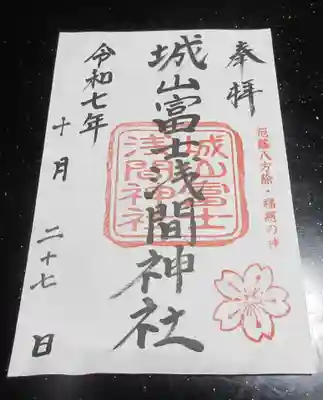 奉拝
厄除八方除・福徳の神
城山富士浅間神社
城山富士
浅間神社
令和七年
十月
二十七日